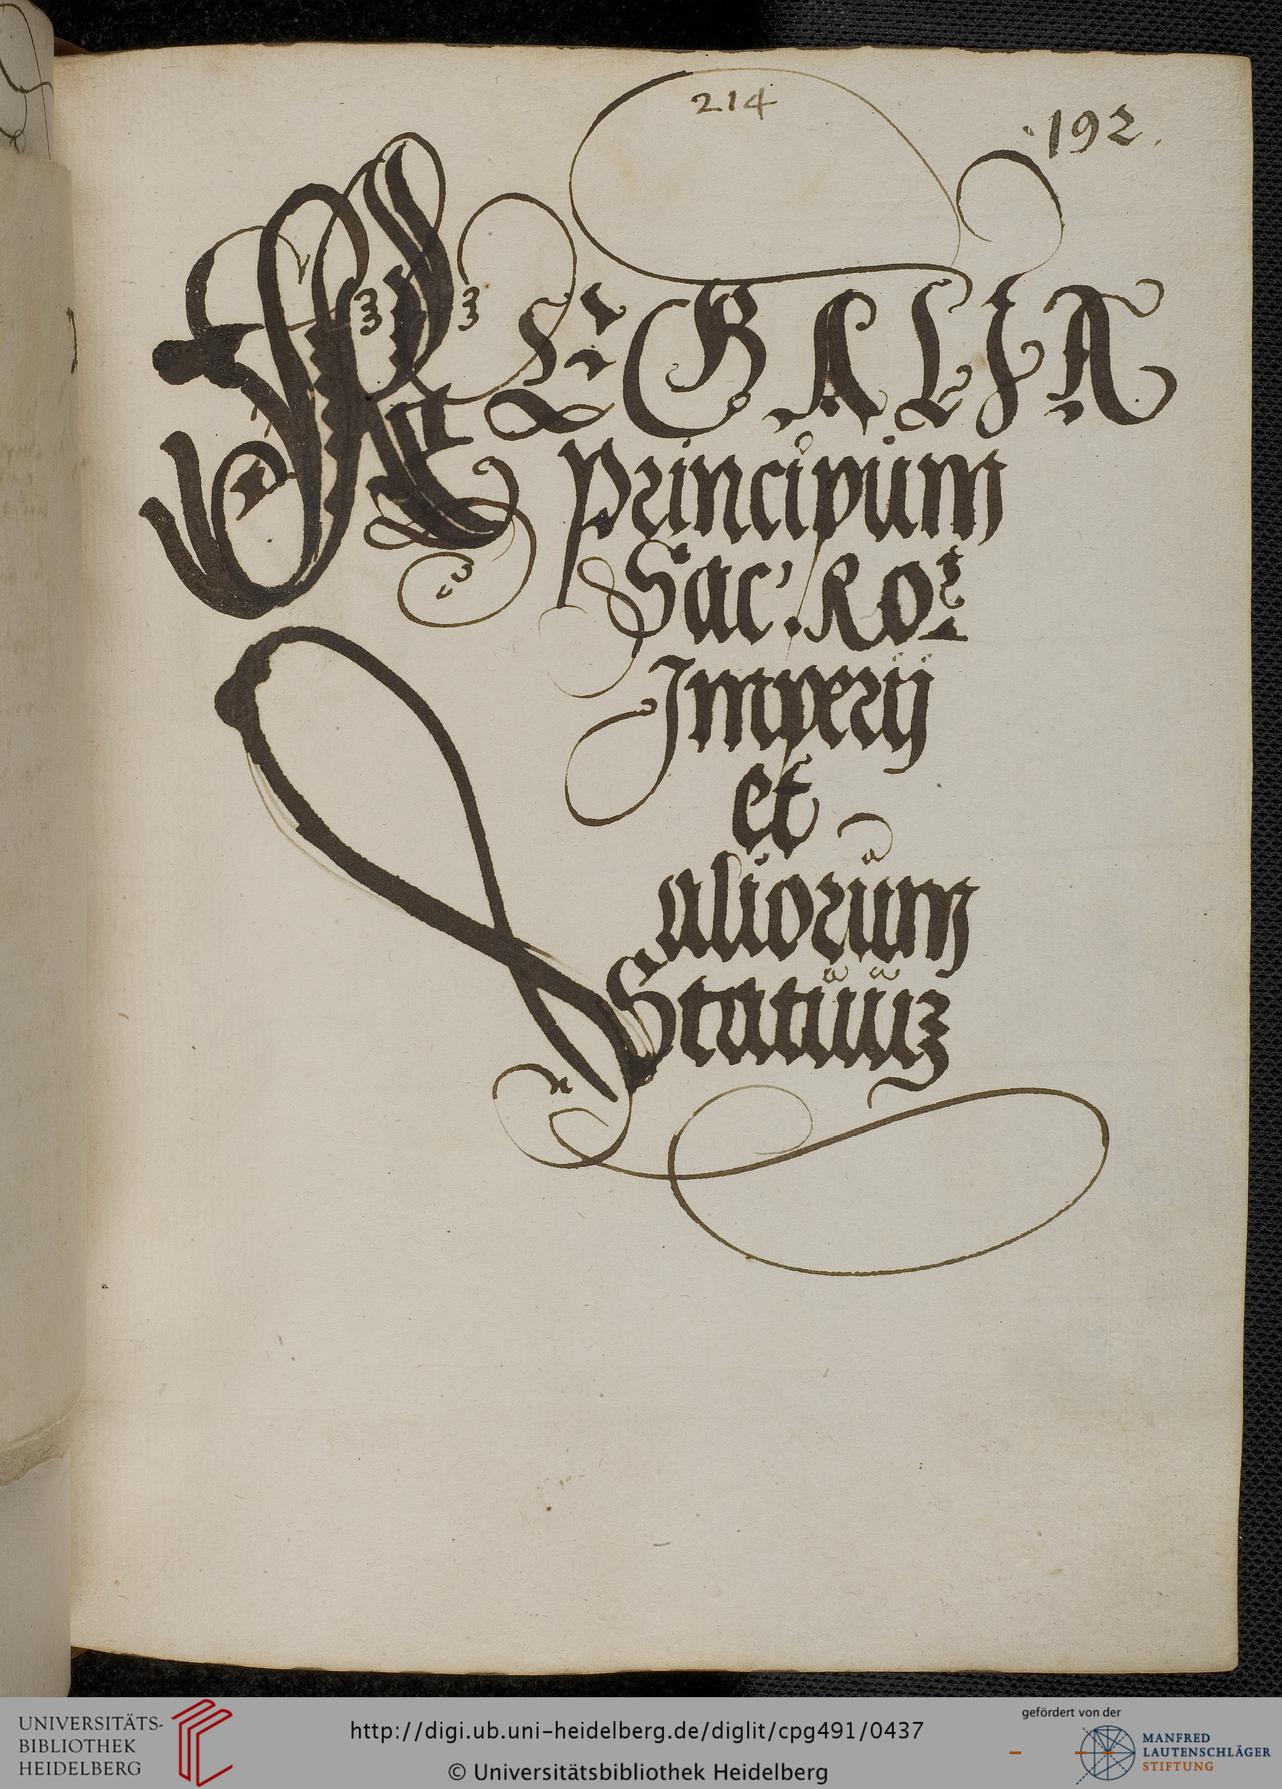 214
·192.
REGALIA
Principum
Sac'. Ro:
Imperij
et
aliorum
Statuuz
UNIVERSITÄTS-
BIBLIOTHEK
HEIDELBERG
http://digi.ub.uni-heidelberg.de/diglit/cpg491/0437
© Universitätsbibliothek Heidelberg
gefördert von der
MANFRED
LAUTENSCHLÄGER
STIFTUNG